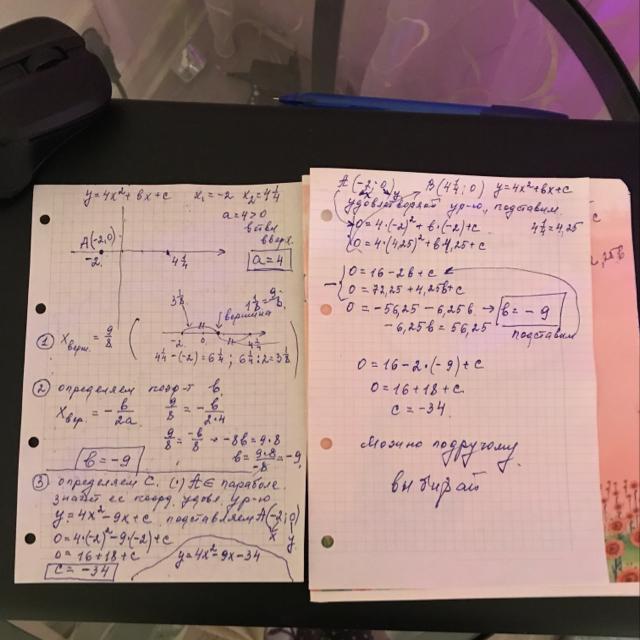 y=4x²+вx+c x₁=-2 x₂=4¼
a=4>0
ветви
вверх.
A(-2;0)
a=4
-2 4¼
1⅛=9/8
3⅛ вершина
① Xверш.=9/8
-2 0 4¼
4¼-(-2)=6¼; 6¼:2=3⅛
② определяем коэф-т в.
Xвер.=-в/2a 9/8=-в/2·4
9/8=-в/8 → -8в=9·8
в=-9 в=9·8/-8=-9
③ определяем C. (·) A∈ параболе
значит её коорд. удовл. ур-ю
y=4x²-9x+c подставляем A(-2;0)
x y
0=4·(-2)²-9·(-2)+c
0=16+18+c y=4x²-9x-34
c=-34
A(-2;0) B(4¼;0) y=4x²+вx+c
x y
удовлетворяет ур-ю, подставим.
0=4·(-2)²+в·(-2)+c 4¼=4,25
0=4·(4,25)²+в·4,25+c
0=16-2в+c
0=72,25+4,25в+c
0=-56,25-6,25в → в=-9
-6,25в=56,25 подставим
0=16-2·(-9)+c
0=16+18+c.
c=-34.
Можно подругому.
выбирай